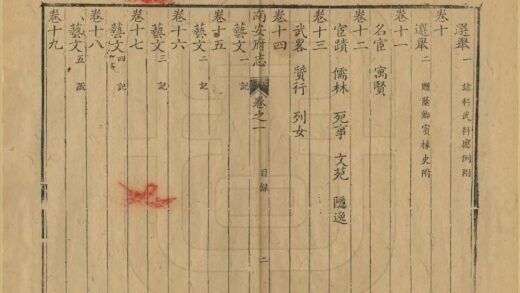 選舉一 諸科武科應例附
卷十
選舉二 贈蔭鄉賓掾史附
卷十一
名宦 寓賢
卷十二
宦蹟 儒林 死事 文苑 隱逸
卷十三
武畧 質行 列女
卷十四
南安府志 卷之一 目錄 二
藝文一 記
卷十五
藝文二 記
卷十六
藝文三 記
卷十七
藝文四 記
卷十八
藝文五
卷十九